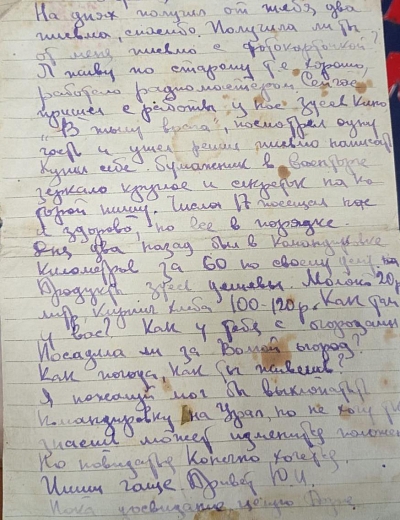 На днях получил от тебя два
письма, спасибо. Получила ли ты
от меня письмо с фотокарточкой?
Я живу по старому т.е. хорошо,
работаю радиомастером. Сейчас
пришел с работы, у нас здесь кино
"В тылу врага", посмотрел одну
часть и ушел решил письмо написать
Купил себе бумажник в военторге
зеркало круглое и секретк на ко
торой пишу. Числа 17 посещал нас
здорово, но все в порядке
Дня два назад был в командировке
километров за 60 по своему делу
Продукты здесь дешевы. Молоко 20р
литр, кирпич хлеба 100-120р. Как там
у вас? Как у тебя с огородами
Посадила ли за Волгой огород?
Как погода, как вы живете?
Я пожалуй мог бы выхлопотать
командировку на Урал, но не хочу
знаешь может изменится положен
Но повидать конечно хочется.
Пиши чаще. Привет Ю.И.
Пока досвидание целую